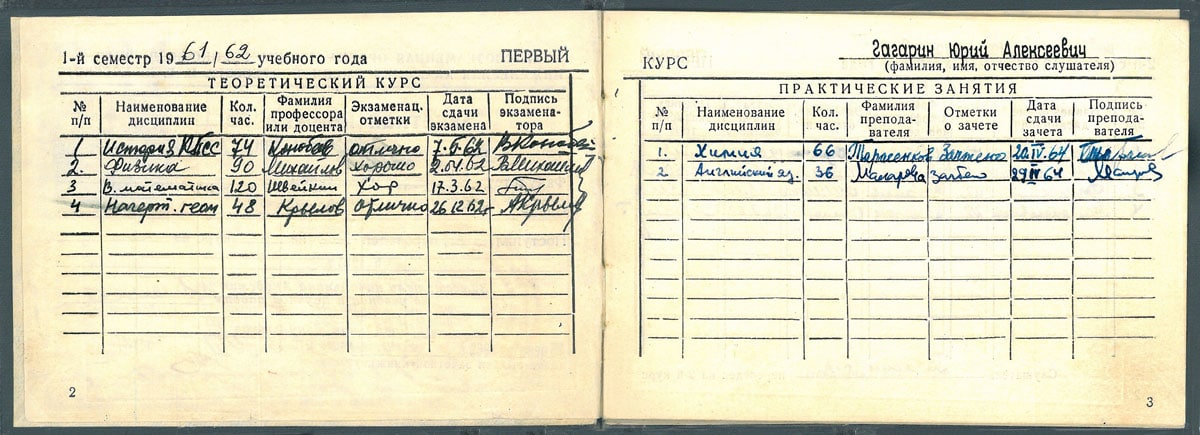 1-й семестр 1961/62 учебного года ПЕРВЫЙ
ТЕОРЕТИЧЕСКИЙ КУРС
№ п/п Наименование дисциплин Кол. час. Фамилия профессора или доцента Экзаменац. отметки Дата сдачи экзамена Подпись экзаменатора
1 История КПСС 74 отлично
2. Физика 90 Михайлов Хорошо 2.04.62
3 В. математика 120 Швейкин Хор 17.3.62
4 Начерт. геом 48 Крылов Отлично 26.12.62г.
2
Гагарин Юрий Алексеевич
КУРС (фамилия, имя, отчество слушателя)
ПРАКТИЧЕСКИЕ ЗАНЯТИЯ
№ п/п Наименование дисциплин Кол. час. Фамилия преподавателя Отметки о зачете Дата сдачи зачета Подпись преподавателя
1. Химия 66 Тарасенков Зачтено 20.IV.64
2. Английский яз. 36 Макарова Зачтено 29.IV.64
3